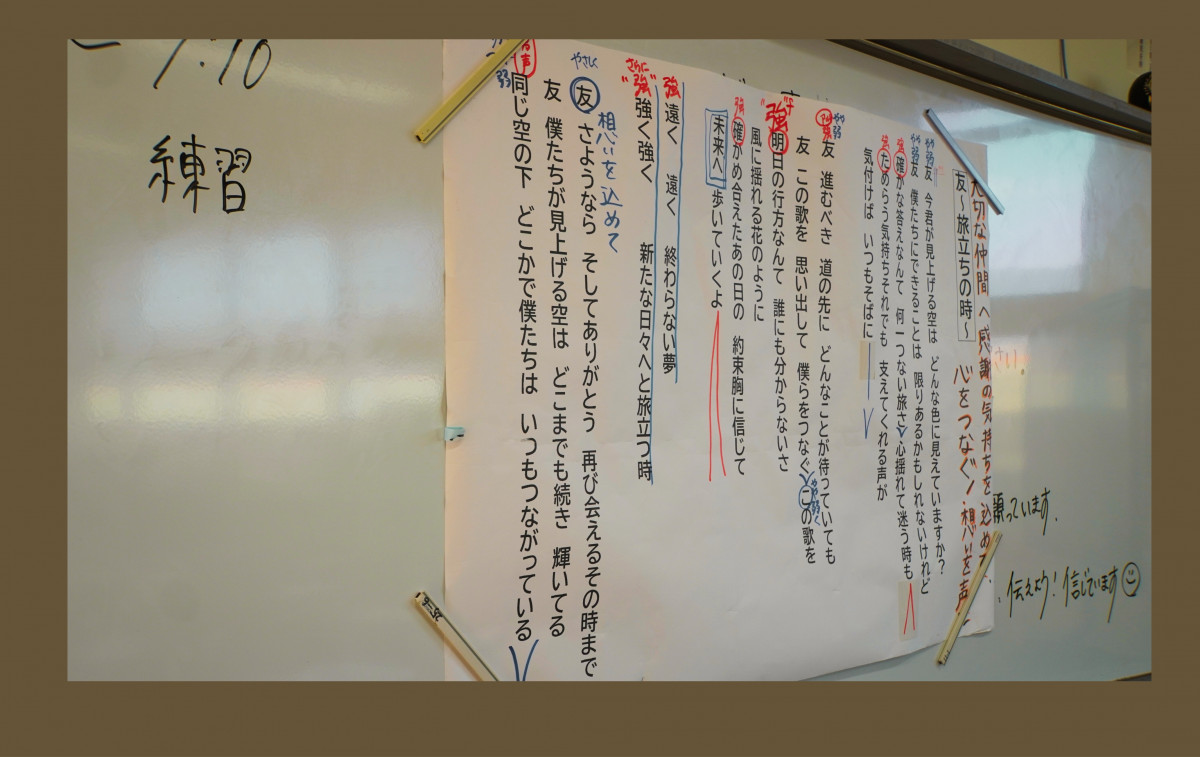 大切な仲間へ感謝の気持ちを込めて、
心をつなぐ!想いを声
友~旅立ちの時~
やや弱
友 今君が見上げる空は どんな色に見えていますか?
やや弱
友 僕たちにできることは 限りあるかもしれないけれど
強
確かな答えなんて 何一つない旅さ 心揺れて迷う時も
強
ためらう気持ちそれでも 支えてくれる声が
気付けば いつもそばに
やや弱
友 進むべき 道の先に どんなことが待っていても
友 この歌を 思い出して 僕らをつなぐ この歌を
やや弱く
強
明日の行方なんて 誰にも分からないさ
風に揺れる花のように
強
確かめ合えたあの日の 約束胸に信じて
未来へ 歩いていくよ
強
遠く 遠く 終わらない夢
さらに
"強"
強く強く 新たな日々へと旅立つ時
想いを込めて
やさしく
友 さようなら そしてありがとう 再び会えるその時まで
友 僕たちが見上げる空は どこまでも続き 輝いてる
声
弱
同じ空の下 どこかで僕たちは いつもつながっている
練習
さい。
願っています。
伝えよう!信じています